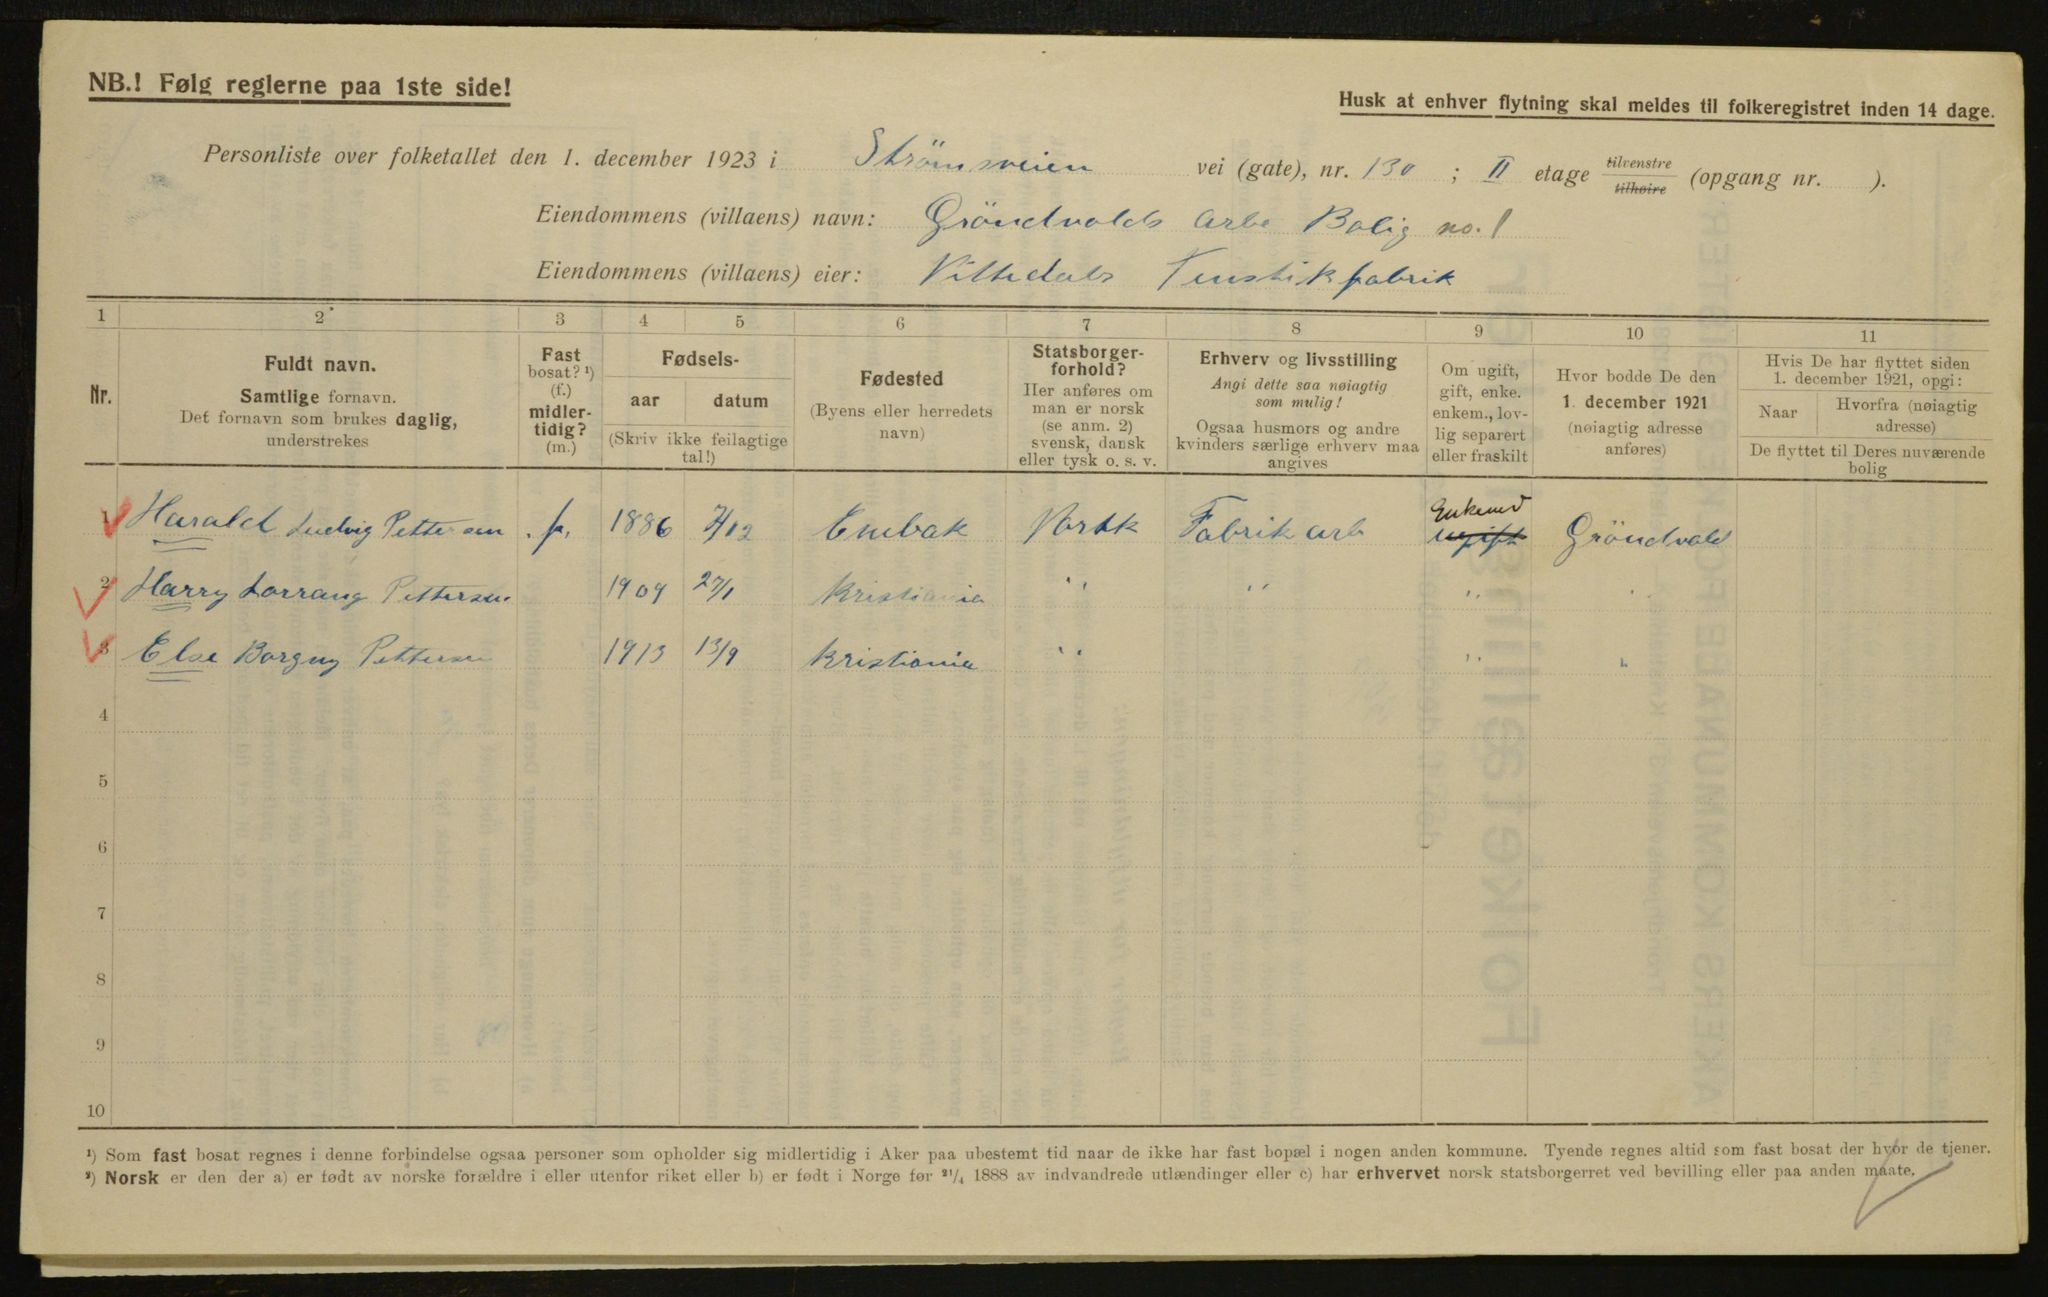 NB.! Følg reglerne paa 1ste side!
Husk at enhver flytning skal meldes til folkeregistret inden 14 dage.
Personliste over folketallet den 1. december 1923 i Strömsveien vei (gate), nr. 130 ; II etage tilvenstre tilhøire (opgang nr. ).
Eiendommens (villaens) navn: Gröndvolds Arbe Bolig no. 1
Eiendommens (villaens) eier: Nittedals Tenstikfabrik
1 2 3 4 5 6 7 8 9 10 11
Nr.
Fuldt navn.
Samtlige fornavn.
Det fornavn som brukes daglig,
understrekes
Fast
bosat? ¹)
(f.)
midler-
tidig?
(m.)
Fødsels-
aar datum
(Skriv ikke feilagtige
tal!)
Fødested
(Byens eller herredets
navn)
Statsborger-
forhold?
Her anføres om
man er norsk
(se anm. 2)
svensk, dansk
eller tysk o. s. v.
Erhverv og livsstilling
Angi dette saa nøiagtig
som mulig!
Ogsaa husmors og andre
kvinders særlige erhverv maa
angives
Om ugift,
gift, enke.
enkem., lov-
lig separert
eller fraskilt
Hvor bodde De den
1. december 1921
(nøiagtig adresse
anføres)
Hvis De har flyttet siden
1. december 1921, opgi:
Naar
Hvorfra (nøiagtig
adresse)
De flyttet til Deres nuværende
bolig
Enkemd
1 Harald Ludvig Pettersen f. 1886 7/12 Enebak Norsk Fabrik arb ugift Gröndvold
2 Harry Lorrang Pettersen 1909 27/1 Kristiania " " " "
3 Else Borgny Pettersen 1913 13/9 Kristiania " " "
4
5
6
7
8
9
10
¹) Som fast bosat regnes i denne forbindelse ogsaa personer som opholder sig midlertidig i Aker paa ubestemt tid naar de ikke har fast bopæl i nogen anden kommune. Tyende regnes altid som fast bosat der hvor de tjener.
²) Norsk er den der a) er født av norske forældre i eller utenfor riket eller b) er født i Norge før ²¹/₄ 1888 av indvandrede utlændinger eller c) har erhvervet norsk statsborgerret ved bevilling eller paa anden maate.